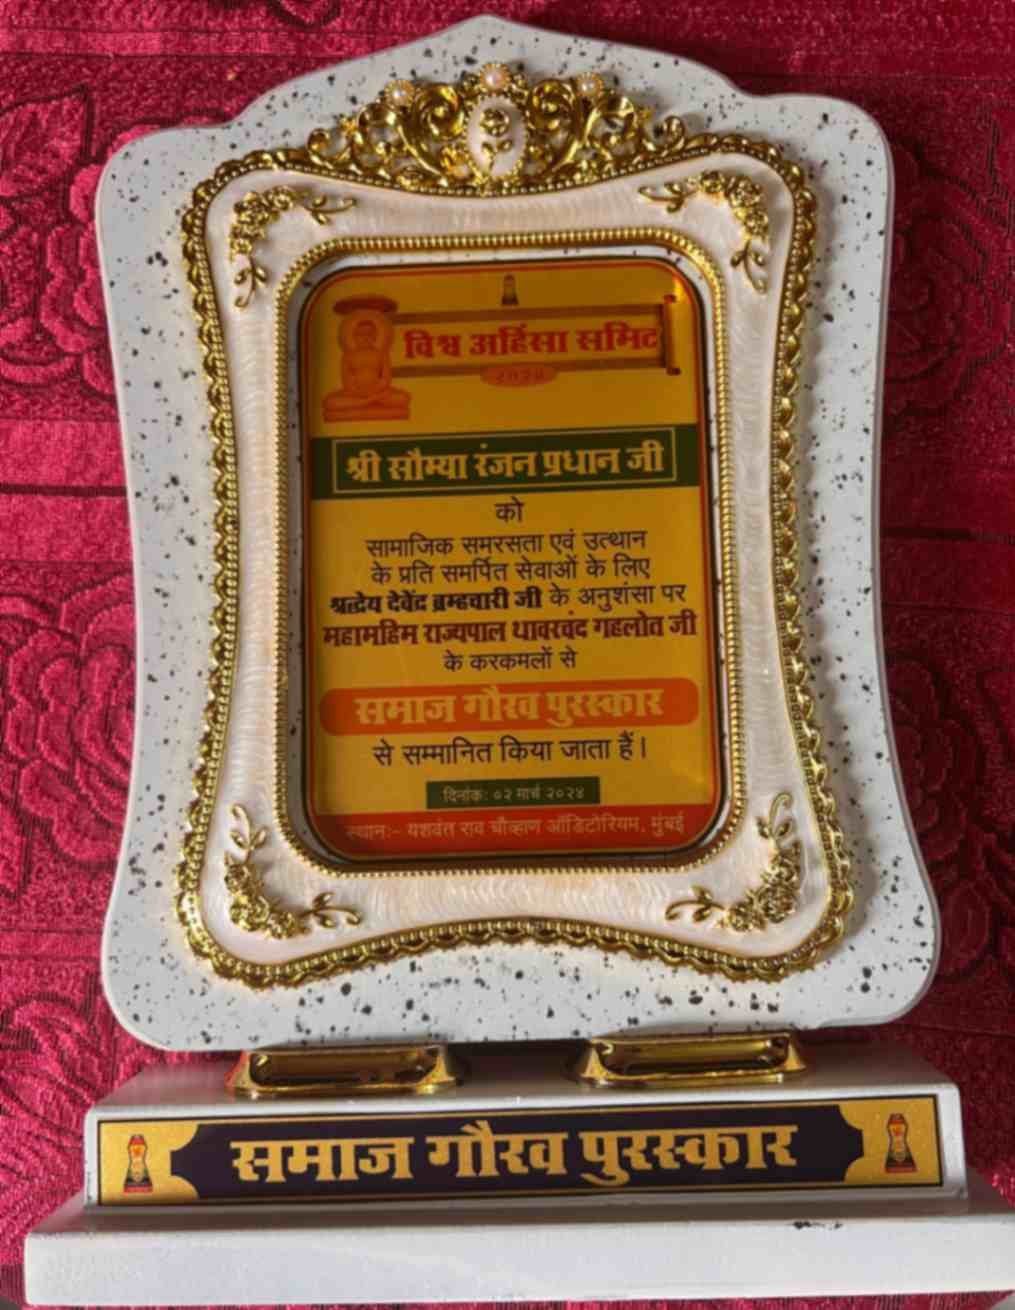 विश्व अहिंसा समिट
२०२४
श्री सौम्या रंजन प्रधान जी
को
सामाजिक समरसता एवं उत्थान
के प्रति समर्पित सेवाओं के लिए
श्रद्धेय देवेंद्र ब्रम्हचारी जी के अनुशंसा पर
महामहिम राज्यपाल थावरचंद गहलोत जी
के करकमलों से
समाज गौरव पुरस्कार
से सम्मानित किया जाता हैं।
दिनांक: ०२ मार्च २०२४
स्थान:- यशवंत राव चौव्हाण ऑडिटोरियम, मुंबई
समाज गौरव पुरस्कार